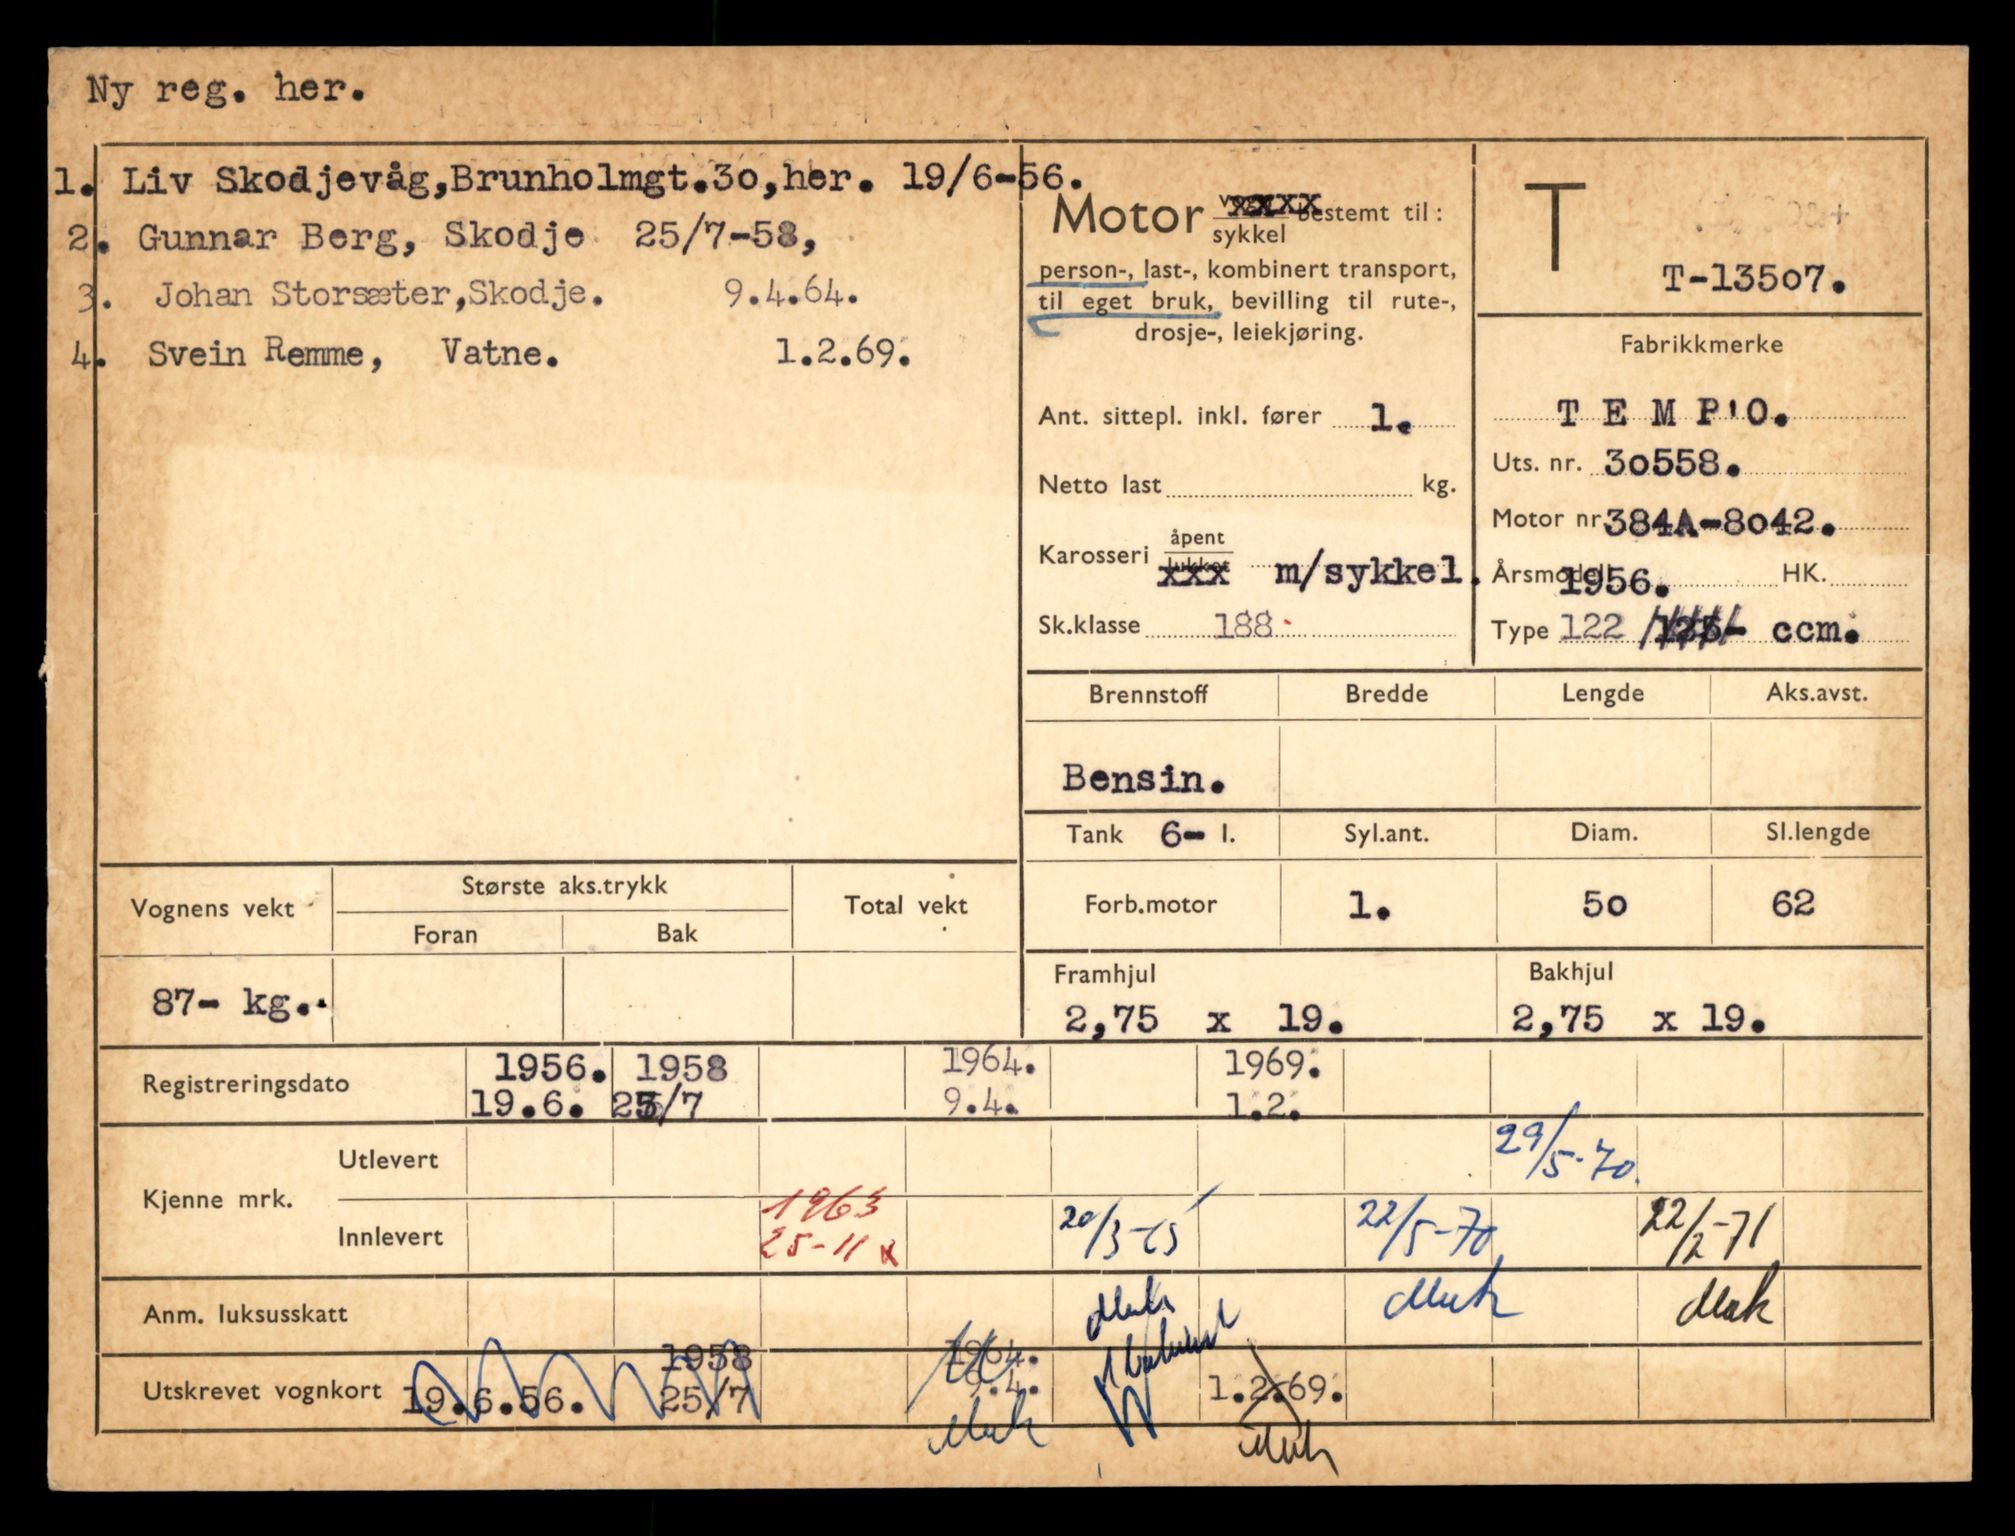 Ny reg. her.
1. Liv Skodjevåg,Brunholmgt.3o,her. 19/6-56.
2. Gunnar Berg, Skodje 25/7-58,
3. Johan Storsæter,Skodje. 9.4.64.
4. Svein Remme, Vatne. 1.2.69.
Motor vogn xxxx sykkel bestemt til:
person-, last-, kombinert transport,
til eget bruk, bevilling til rute-,
drosje-, leiekjøring.
Ant. sittepl. inkl. fører 1.
Netto last kg.
Karosseri åpent lukket xxx m/sykkel.
Sk.klasse 188.
T
T-135o7.
Fabrikkmerke
T E M P'O.
Uts. nr. 3o558.
Motor nr. 384A-8o42.
Årsmodell 1956. HK.
Type 122 /123- ccm.
Brennstoff Bredde Lengde Aks.avst.
Bensin.
Tank 6- l. Syl.ant. Diam. Sl.lengde
Forb.motor 1. 5o 62
Framhjul Bakhjul
2,75 x 19. 2,75 x 19.
Vognens vekt Største aks.trykk Total vekt
Foran Bak
87- kg.
Registreringsdato 1956. 1958 1964. 1969.
19.6. 25/7 9.4. 1.2.
Kjenne mrk.
Utlevert 29/5-70.
Innlevert 1963 25-11 20/3-65 22/5-70 22/2-71
Anm. luksusskatt
Utskrevet vognkort 19.6.56. 1958 25/7 1964. 9.4. 1.2.69.